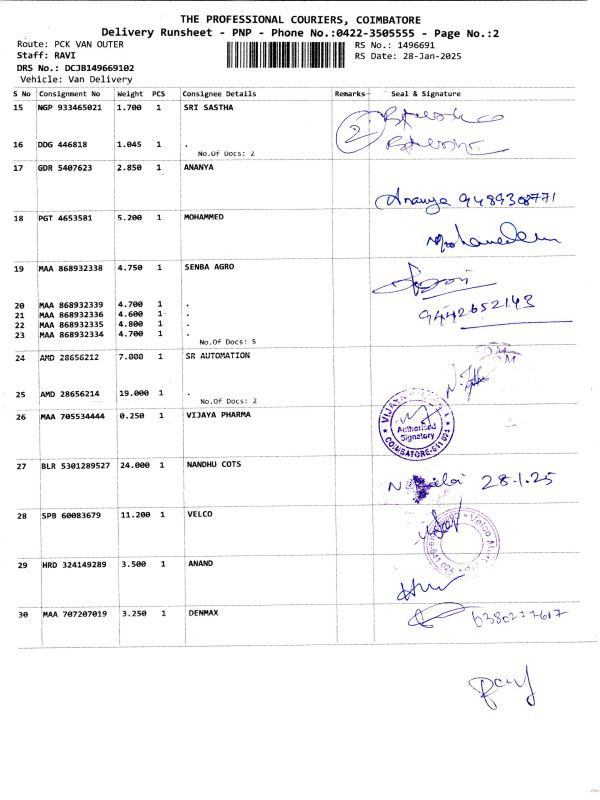 THE PROFESSIONAL COURIERS, COIMBATORE
Delivery Runsheet - PNP - Phone No.:0422-3505555 - Page No.:2
Route: PCK VAN OUTER RS No.: 1496691
Staff: RAVI RS Date: 28-Jan-2025
DRS No.: DCJB149669102
Vehicle: Van Delivery
S No Consignment No Weight PCS Consignee Details Remarks Seal & Signature
15 NGP 933465021 1.700 1 SRI SASTHA
2
16 DDG 446818 1.045 1 .
No.Of Docs: 2
17 GDR 5407623 2.850 1 ANANYA
Ananya 9489308771
18 PGT 4653581 5.200 1 MOHAMMED
19 MAA 868932338 4.750 1 SENBA AGRO
20 MAA 868932339 4.700 1 .
21 MAA 868932336 4.600 1 .
22 MAA 868932335 4.800 1 .
23 MAA 868932334 4.700 1 .
9442652143
No.Of Docs: 5
24 AMD 28656212 7.000 1 SR AUTOMATION
25 AMD 28656214 19.000 1 .
No.Of Docs: 2
26 MAA 705534444 0.250 1 VIJAYA PHARMA
VIJAYA
Authorised
Signatory
COIMBATORE-641 024
27 BLR 5301289527 24.000 1 NANDHU COTS
28.1.25
28 SPB 60083679 11.200 1 VELCO
Velco
641 024
29 HRD 324149289 3.500 1 ANAND
30 MAA 707207019 3.250 1 DENMAX
6380277617